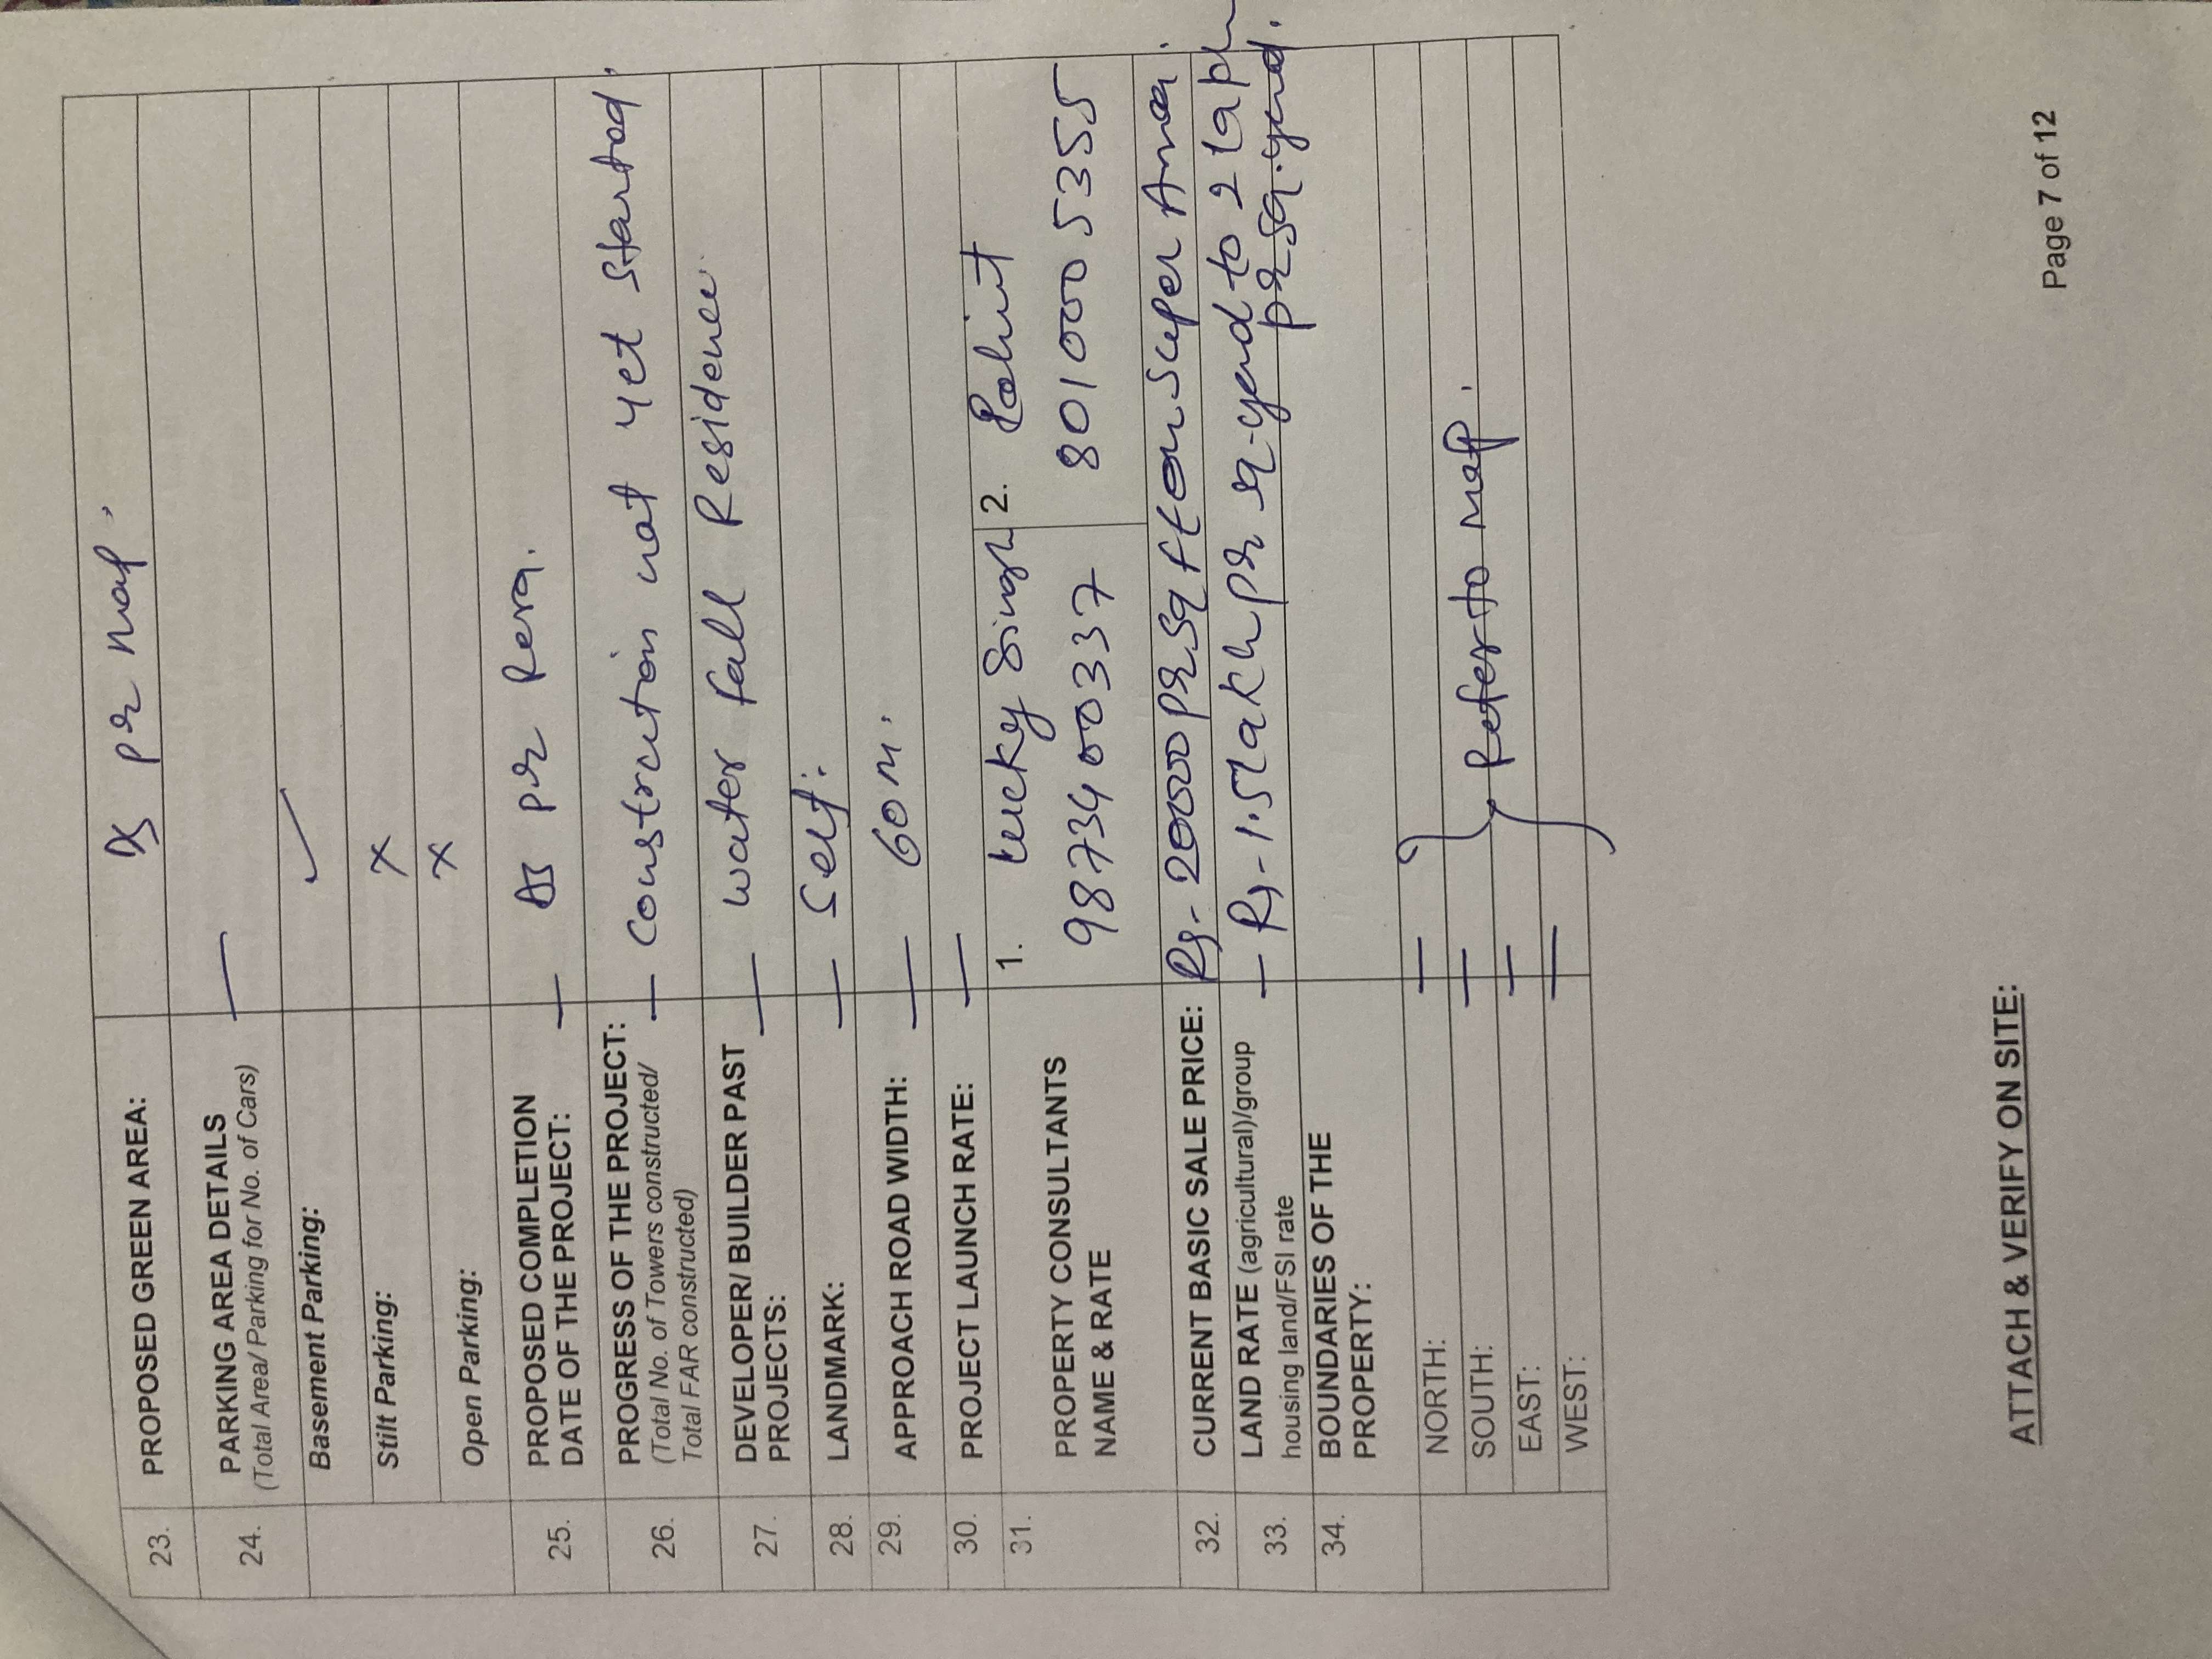 23. PROPOSED GREEN AREA: As pr map.
24. PARKING AREA DETAILS —
(Total Area/ Parking for No. of Cars)
Basement Parking: ✓
Stilt Parking: x
Open Parking: x
25. PROPOSED COMPLETION
DATE OF THE PROJECT: — As pr Rera.
26. PROGRESS OF THE PROJECT:
(Total No. of Towers constructed/
Total FAR constructed) — Construction not yet started.
27. DEVELOPER/ BUILDER PAST
PROJECTS: — water fall Residence.
28. LANDMARK: — Self.
29. APPROACH ROAD WIDTH: — 60 M.
30. PROJECT LAUNCH RATE: —
31. PROPERTY CONSULTANTS
NAME & RATE
1. Lucky Singh
9873400337
2. Rohit
8010005355
32. CURRENT BASIC SALE PRICE: Rs- 20000 pr sq ft on super Area.
33. LAND RATE (agricultural)/group
housing land/FSI rate — Rs- 1.5 lakh pr sq-yard to 2
pr sq.yard.
34. BOUNDARIES OF THE
PROPERTY:
NORTH: —
SOUTH: —
EAST: —
WEST: —
Refer to map.
ATTACH & VERIFY ON SITE:
Page 7 of 12